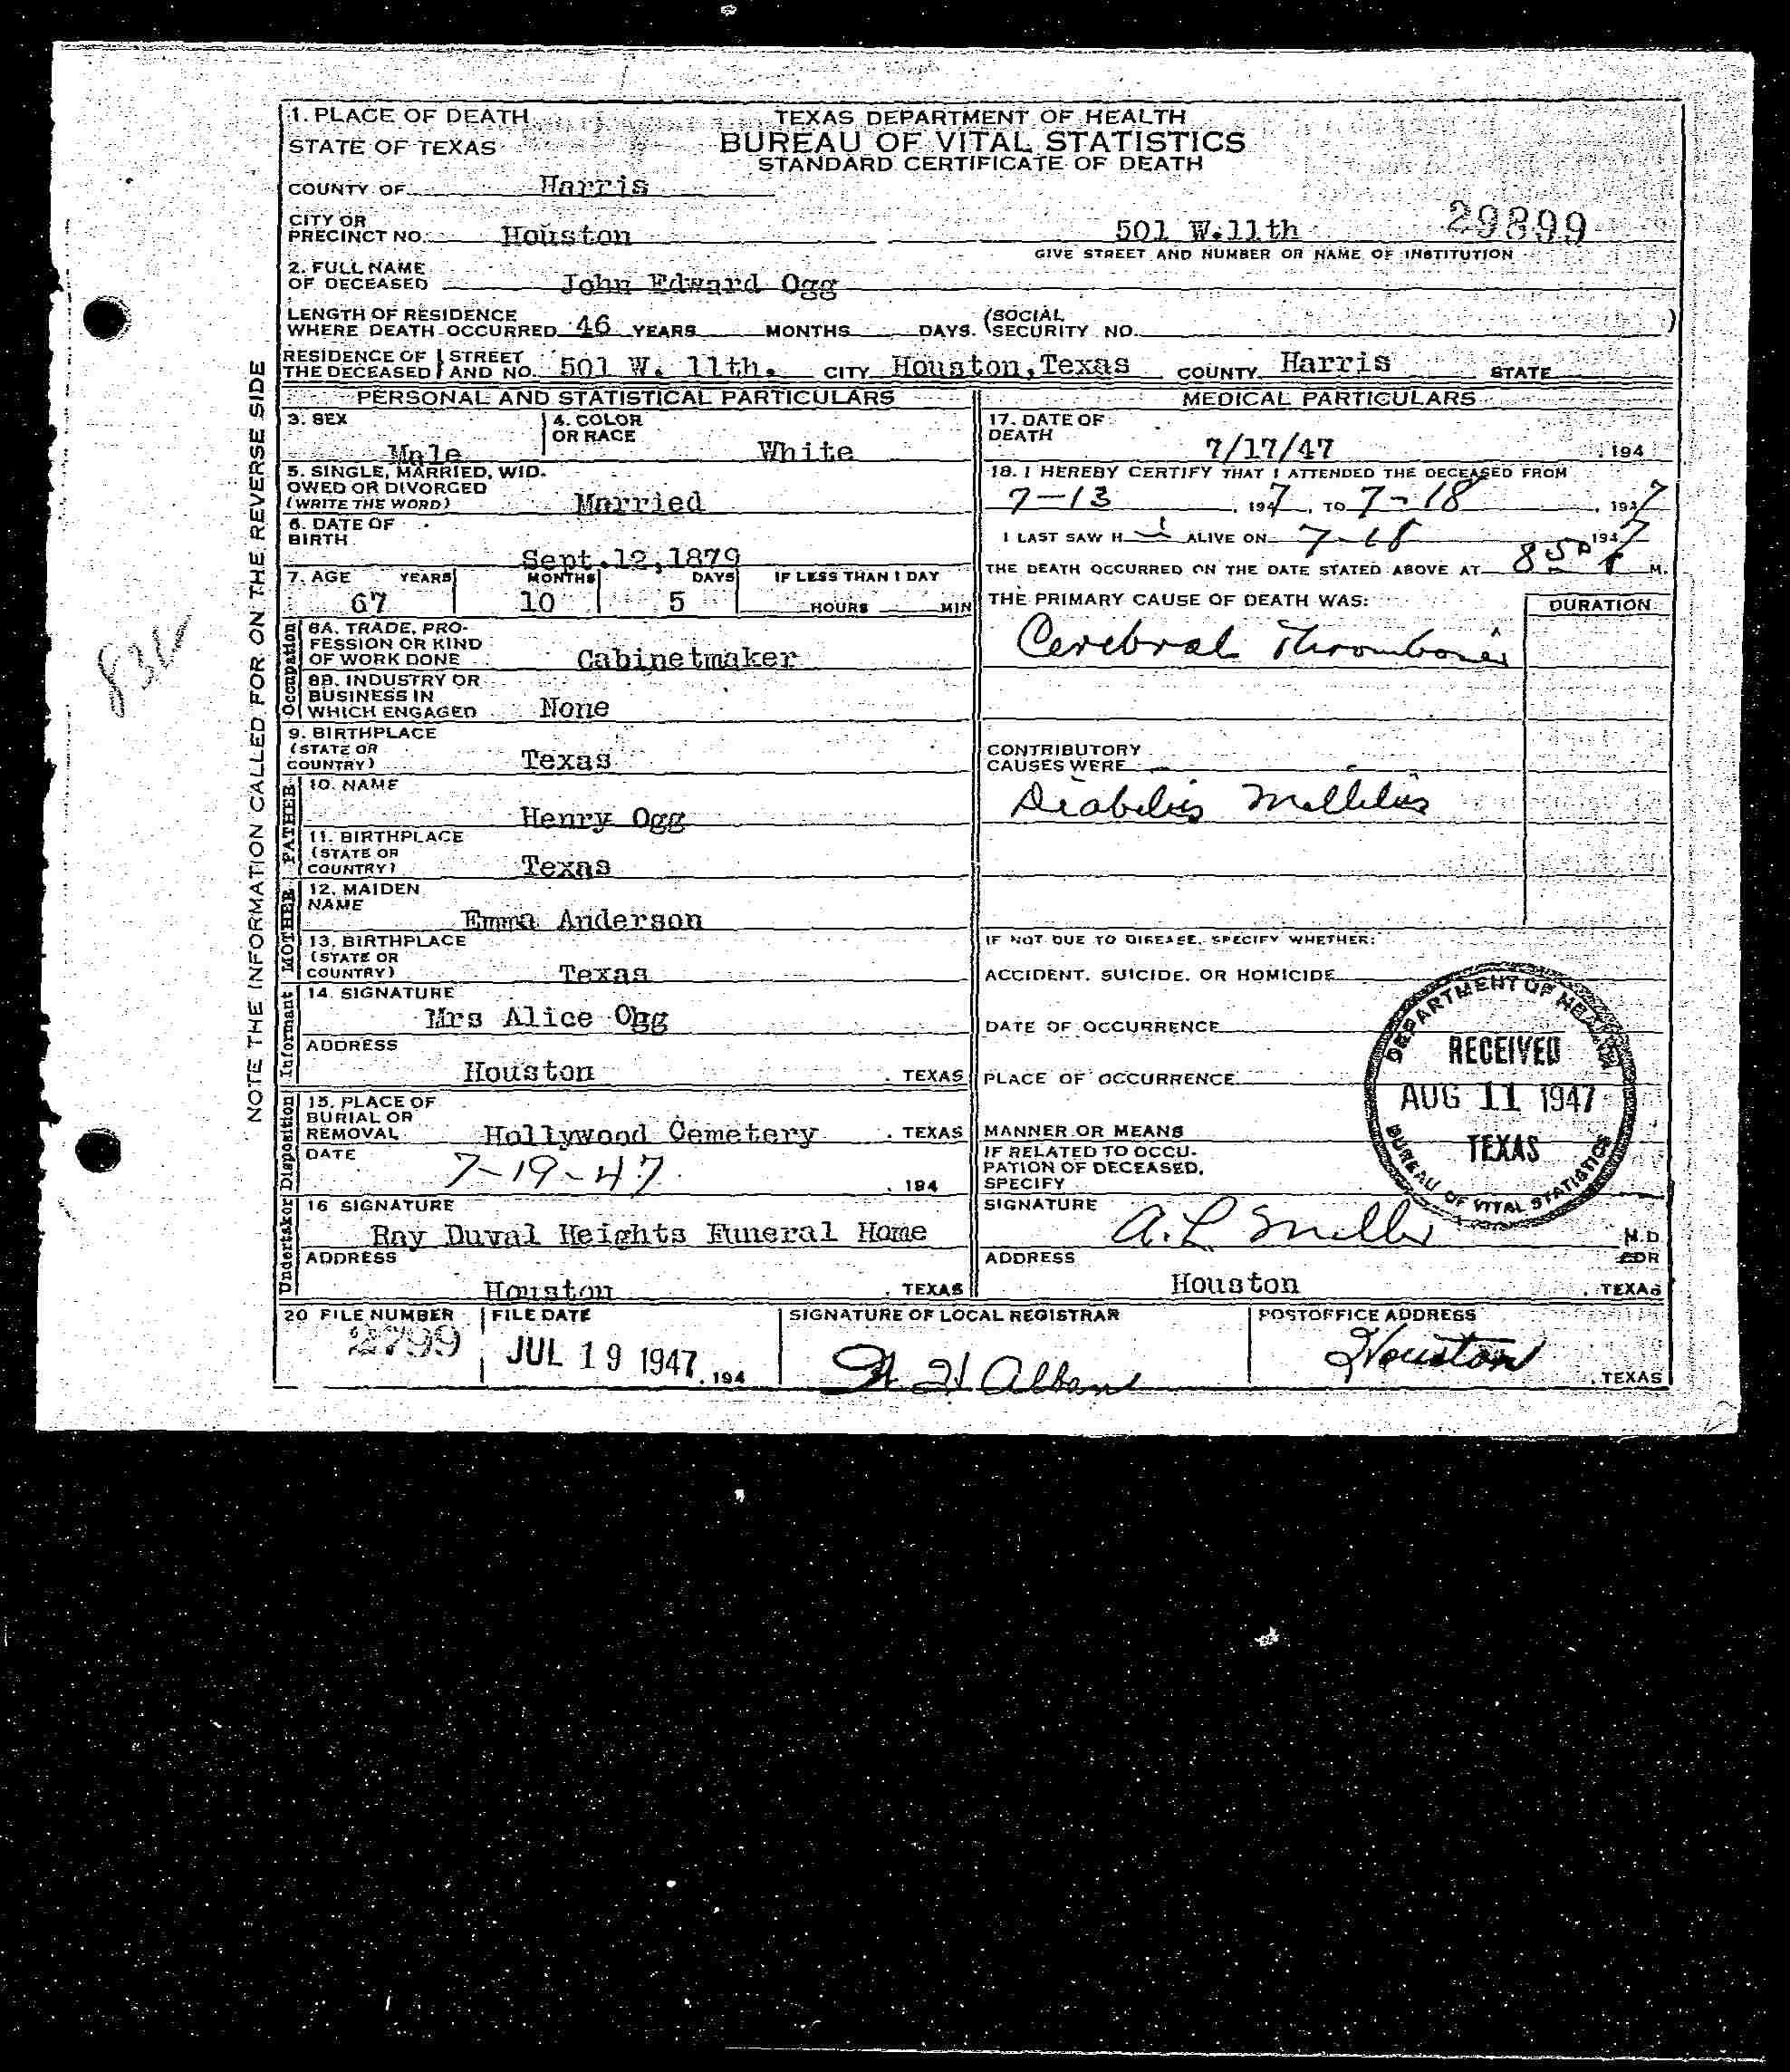 1. PLACE OF DEATH
STATE OF TEXAS
TEXAS DEPARTMENT OF HEALTH
BUREAU OF VITAL STATISTICS
STANDARD CERTIFICATE OF DEATH
COUNTY OF Harris
CITY OR
PRECINCT NO. Houston 501 W.11th 29899
GIVE STREET AND NUMBER OR NAME OF INSTITUTION
2. FULL NAME
OF DECEASED John Edward Ogg
LENGTH OF RESIDENCE
WHERE DEATH OCCURRED 46 YEARS MONTHS DAYS. (SOCIAL
SECURITY NO. )
RESIDENCE OF THE DECEASED } STREET AND NO. 501 W. 11th. CITY Houston,Texas COUNTY Harris STATE
NOTE THE INFORMATION CALLED FOR ON THE REVERSE SIDE
PERSONAL AND STATISTICAL PARTICULARS
3. SEX Male
4. COLOR
OR RACE White
5. SINGLE, MARRIED, WID-
OWED OR DIVORCED
(WRITE THE WORD) Married
6. DATE OF
BIRTH Sept.12,1879
7. AGE YEARS MONTHS DAYS IF LESS THAN 1 DAY
67 10 5 HOURS MIN
Occupation
8A. TRADE, PRO-
FESSION OR KIND
OF WORK DONE Cabinetmaker
8B. INDUSTRY OR
BUSINESS IN
WHICH ENGAGED None
9. BIRTHPLACE
(STATE OR
COUNTRY) Texas
FATHER
10. NAME
Henry Ogg
11. BIRTHPLACE
(STATE OR
COUNTRY) Texas
MOTHER
12. MAIDEN
NAME
Emma Anderson
13. BIRTHPLACE
(STATE OR
COUNTRY) Texas
Informant
14. SIGNATURE
Mrs Alice Ogg
ADDRESS
Houston . TEXAS
Disposition
15. PLACE OF
BURIAL OR
REMOVAL Hollywood Cemetery . TEXAS
DATE 7-19-47 . 194
Undertaker
16 SIGNATURE
Ray Duval Heights Funeral Home
ADDRESS
Houston . TEXAS
MEDICAL PARTICULARS
17. DATE OF
DEATH 7/17/47 . 194
18. I HEREBY CERTIFY THAT I ATTENDED THE DECEASED FROM
7-13 . 1947 . TO 7-18 . 1947
I LAST SAW H i ALIVE ON 7-18 1947
THE DEATH OCCURRED ON THE DATE STATED ABOVE AT 8 50 P M.
THE PRIMARY CAUSE OF DEATH WAS: DURATION
Cerebral Thrombosis
CONTRIBUTORY
CAUSES WERE
Diabetes Mellitus
IF NOT DUE TO DISEASE, SPECIFY WHETHER:
ACCIDENT, SUICIDE, OR HOMICIDE
DATE OF OCCURRENCE
PLACE OF OCCURRENCE
MANNER OR MEANS
IF RELATED TO OCCU-
PATION OF DECEASED,
SPECIFY
DEPARTMENT OF HEALTH
RECEIVED
AUG 11 1947
TEXAS
BUREAU OF VITAL STATISTICS
SIGNATURE A. L. Miller M.D.
ADDRESS
Houston . TEXAS
20 FILE NUMBER FILE DATE SIGNATURE OF LOCAL REGISTRAR POSTOFFICE ADDRESS
2799 JUL 19 1947 . 194 Houston . TEXAS